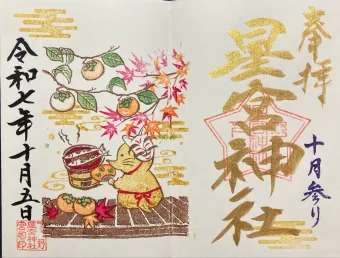 奉拝
星宮神社
十月参り
令和七年十月五日